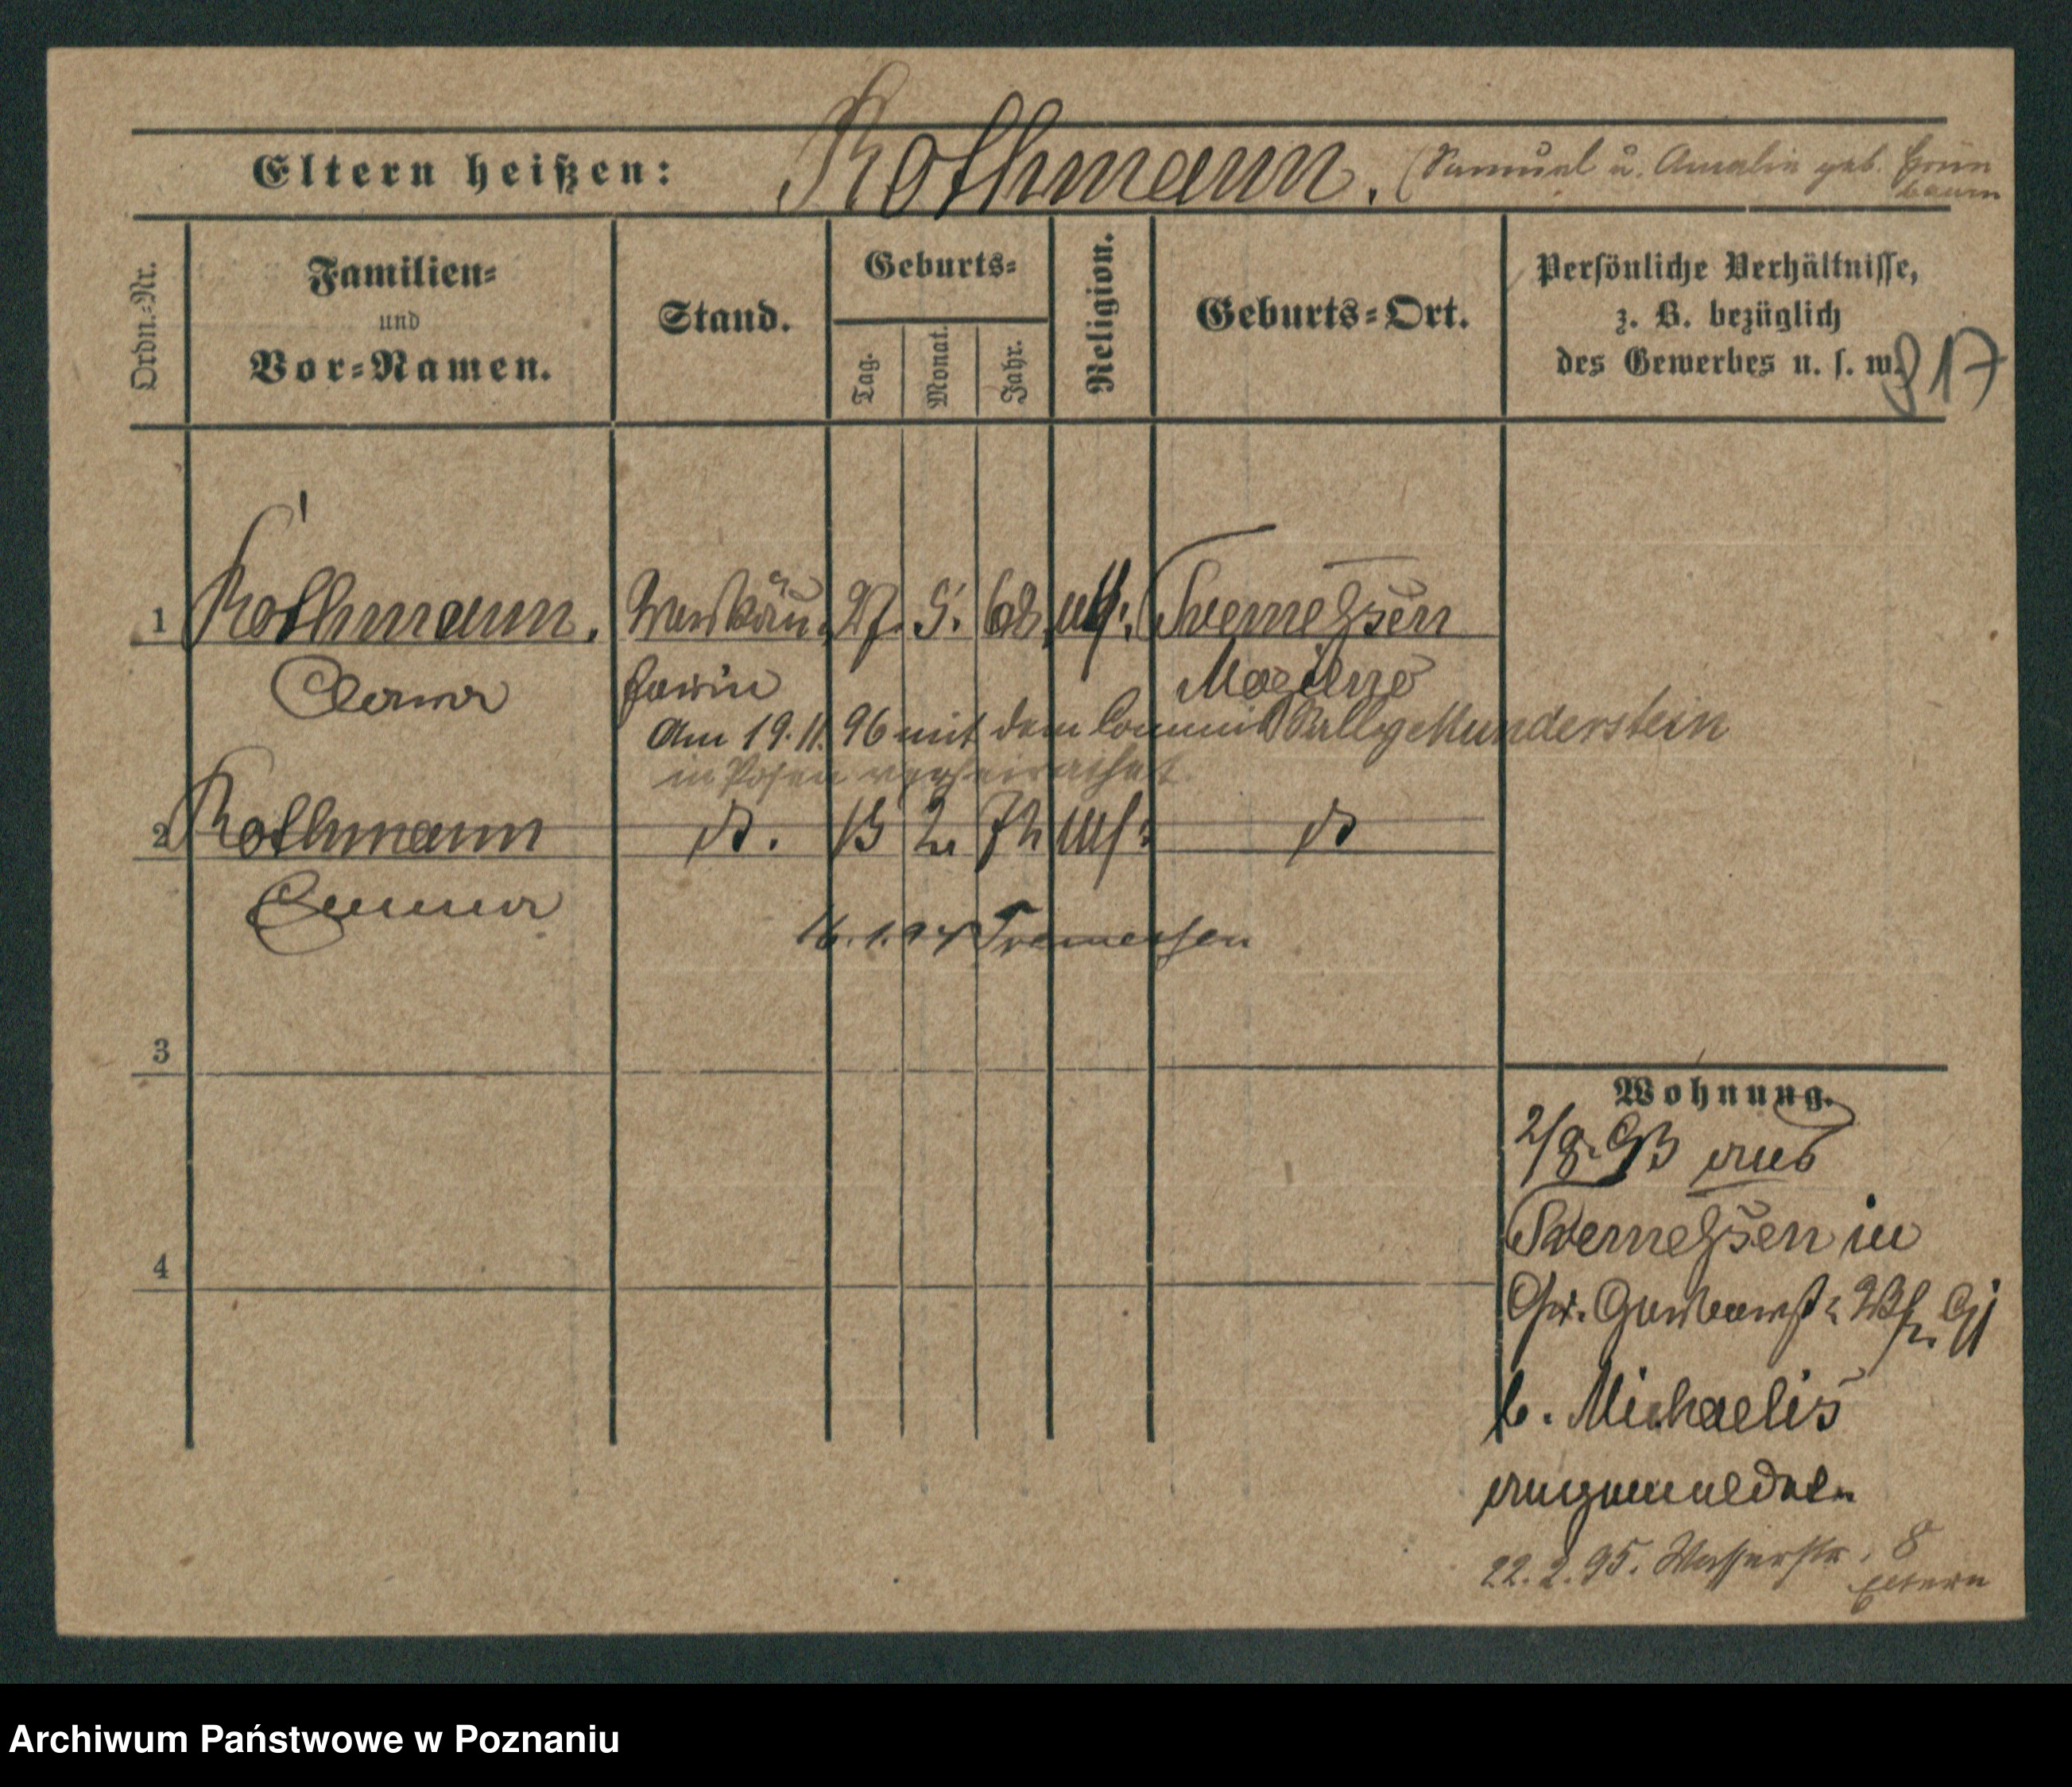 Eltern heißen: Rothmann. (Samuel u. Amalie geb. Grün
baum
Ordn.-Nr.
Familien-
und
Vor-Namen.
Stand.
Geburts-
Tag.
Monat.
Jahr.
Religion.
Geburts-Ort.
Persönliche Verhältnisse,
z. B. bezüglich
des Gewerbes u. s. w.
817
1 Rothmann. Verkäu 27. 5. 68 Tremeßen
Clara ferin Mogilno
Am 19.11.96 mit dem Commis Munderstein
in Posen verheirathet
2 Rothmann do. 13 2. 72 do
Emma
16.1.94 Tremessen
3
4
Wohnung.
2/8. 93 aus
Tremeßen in
b. Michaelis
angemeldet.
22.2.95. Wasserstr. 8
Eltern
Archiwum Państwowe w Poznaniu